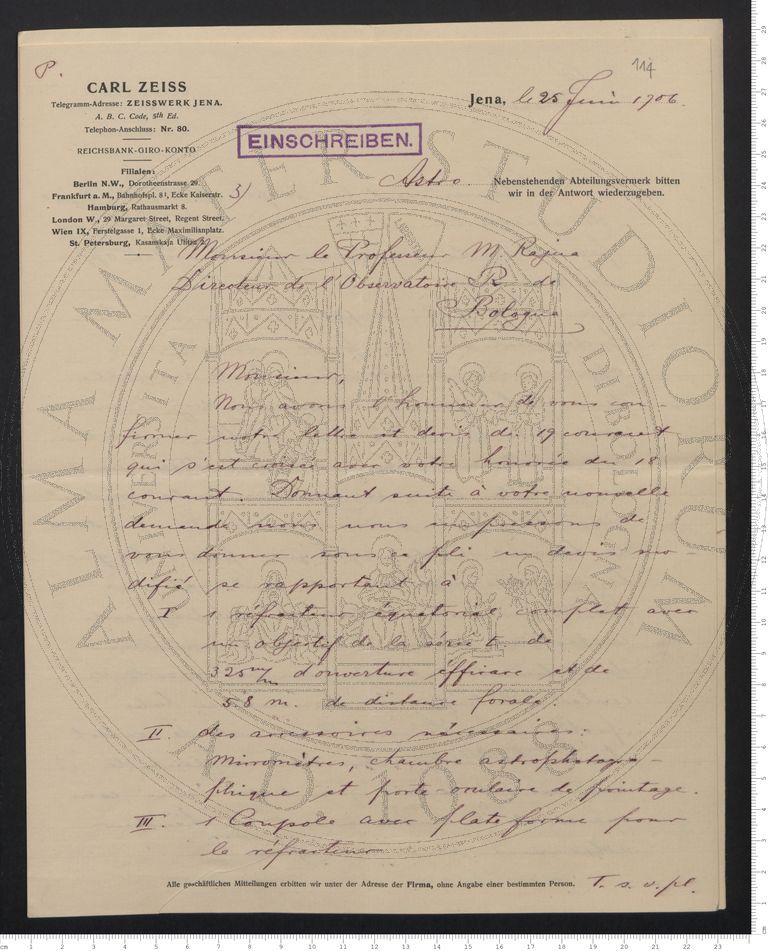 P.
114
CARL ZEISS
Telegramm-Adresse: ZEISSWERK JENA.
A. B. C. Code, 5th Ed.
Telephon-Anschluss: Nr. 80.
REICHSBANK-GIRO-KONTO
Filialen:
Berlin N.W., Dorotheenstrasse 29.
Frankfurt a. M., Bahnhofspl. 8¹, Ecke Kaiserstr.
Hamburg, Rathausmarkt 8.
London W., 29 Margaret Street, Regent Street.
Wien IX, Ferstelgasse 1, Ecke Maximilianplatz.
St. Petersburg, Kasanskaja Uliza 2.
3)
EINSCHREIBEN.
Jena, le 25 Juin 1906.
Astro
Nebenstehenden Abteilungsvermerk bitten
wir in der Antwort wiederzugeben.
Monsieur le Professeur M. Rajna
Directeur de l'Observatoire R. de
Bologna
Monsieur,
Nous avons l'honneur de vous con-
firmer notre lettre et devis du 19 courant
qui s'est croisée avec votre honorée du 18
courant. Donnant suite à votre nouvelle
demande nous nous empressons de
vous donner sous ce pli un devis mo-
difié se rapportant à
I 1 réfracteur équatorial complet avec
un objectif de la série E. de
325 m/m d'ouverture éfficace et de
5.8 m. de distance focale.
II. des accessoires nécessaires:
Micromètres, chambre astrophotogra-
phique et porte-oculaire de pointage.
III. 1 Coupole avec plateforme pour
le réfracteur
Alle geschäftlichen Mitteilungen erbitten wir unter der Adresse der Firma, ohne Angabe einer bestimmten Person.
T. s. v. pl.
ALMA MATER STUDIORUM
A.D. 1088